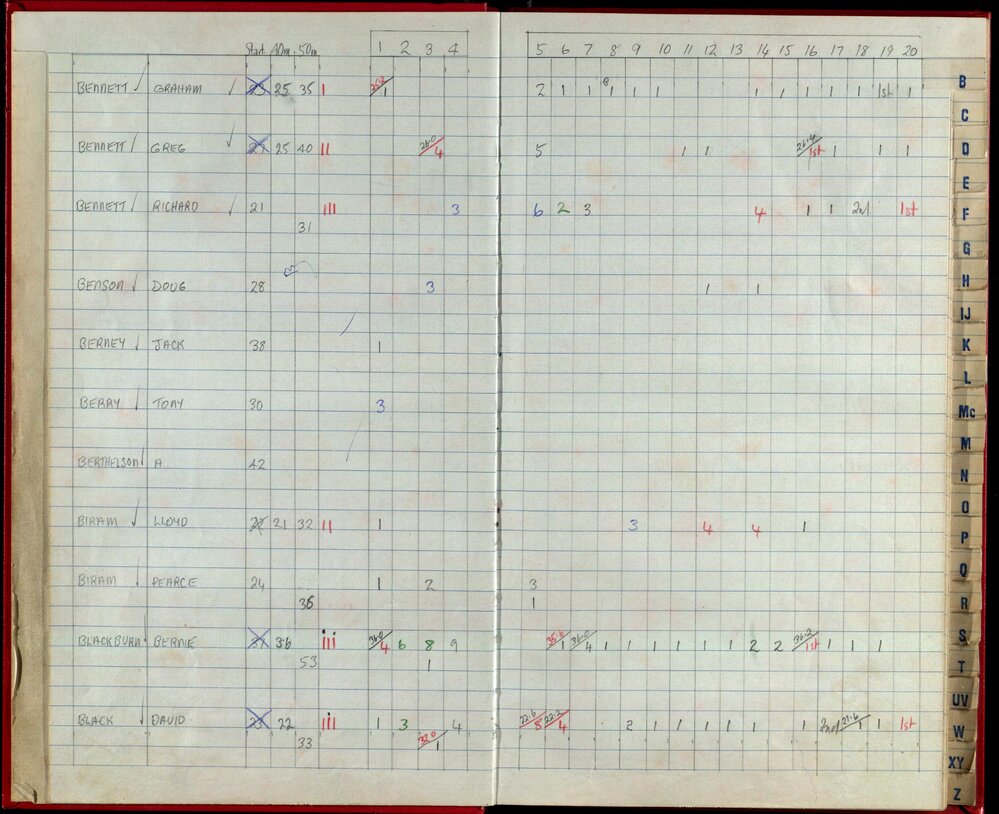 Start 40m 50m 1 2 3 4 5 6 7 8 9 10 11 12 13 14 15 16 17 18 19 20
BENNETT GRAHAM 25 35 1 1 2 1 1 1 1 1 1 1 1 1 1 1st 1
BENNETT GREG 25 40 11 26.0 4 5 1 1 1st 1 1 1
BENNETT RICHARD 21 111 3 6 2 3 4 1 1 2nd 1st
31
BENSON DOUG 28 3 1 1
BERNEY JACK 38 1
BERRY TONY 30 3
BERTHELSON A 42
BIRAM LLOYD 21 32 11 1 3 4 4 1
BIRAM PEARCE 24 1 2 3
36 1
BLACKBURN BERNIE 36 iii 4 6 8 9 35.6 1 36.0 4 1 1 1 1 1 1 2 2 36.2 1st 1 1 1
53 1
BLACK DAVID 22 iii 1 3 4 22.6 8 22.2 4 2 1 1 1 1 1 1 2nd 21.6 1 1 1st
33 32.0 1
B
C
D
E
F
G
H
IJ
K
L
Mc
M
N
O
P
Q
R
S
T
UV
W
XY
Z